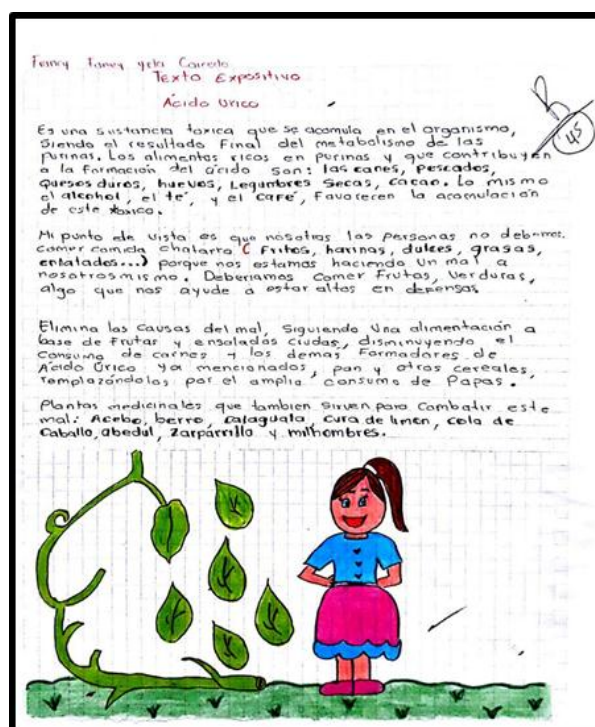 Yela
Texto Expositivo
Ácido Urico
45
Es una sustancia toxica que se acomula en el organismo,
siendo el resultado final del metabolismo de las
purinas. Los alimentos ricos en purinas y que contribuyen
a la formación del ácido son: las canes, pescados,
quesos duros, huevos, Legumbres Secas, cacao. Lo mismo
el alcohol, el té, y el café, favorecen la acomulación
de este toxico.
Mi punto de vista es que nosotros las personas no debemos
comer comida chatarra ( Fritos, harinas, dulces, grasas,
enlatados...) porque nos estamos haciendo un mal a
nosotros mismo. Deberiamos comer Frutas, Verduras,
algo que nos ayude a estar altos en defensas
Elimina las causas del mal, siguiendo Una alimentación a
base de Frutas y ensaladas crudas, disminuyendo el
consumo de carnes y los demas Formadores de
Ácido Úrico ya mencionados, pan y otros cereales,
remplazándolos por el amplio consumo de Papas.
Plantas medicinales que tambien sirven para Combatir este
mal: Acebo, berro, calaguala, cura de limón, cola de
caballo, abedul, zarparrilla y milhombres.